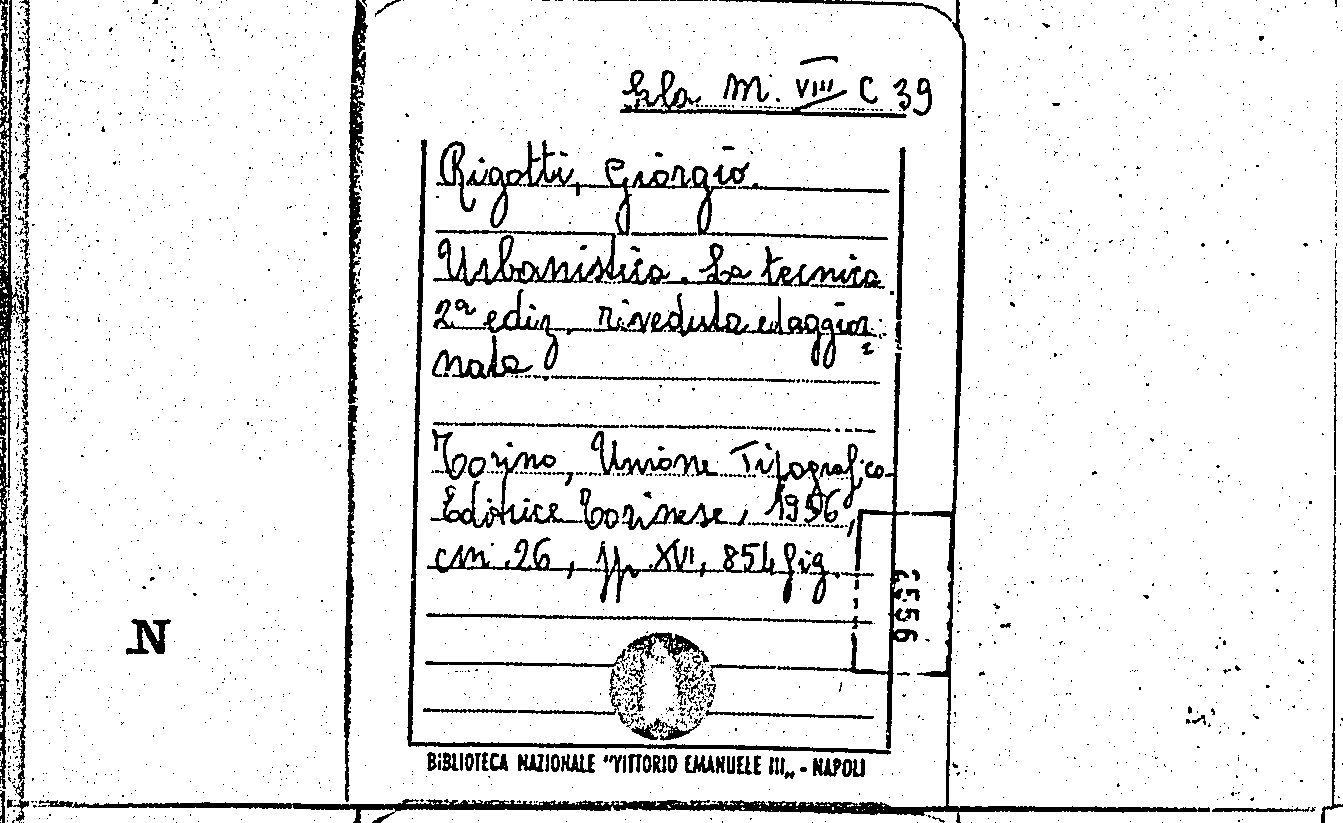 Sla M. VIII C 39
Rigotti, Giorgio.
Urbanistica. La tecnica.
2ª ediz. riveduta ed aggior=
nata.
Torino, Unione Tipografico-
Editrice Torinese, 1956,
cm. 26, pp. XVI, 854 fig.
6556
N
BIBLIOTECA NAZIONALE "VITTORIO EMANUELE III„ - NAPOLI